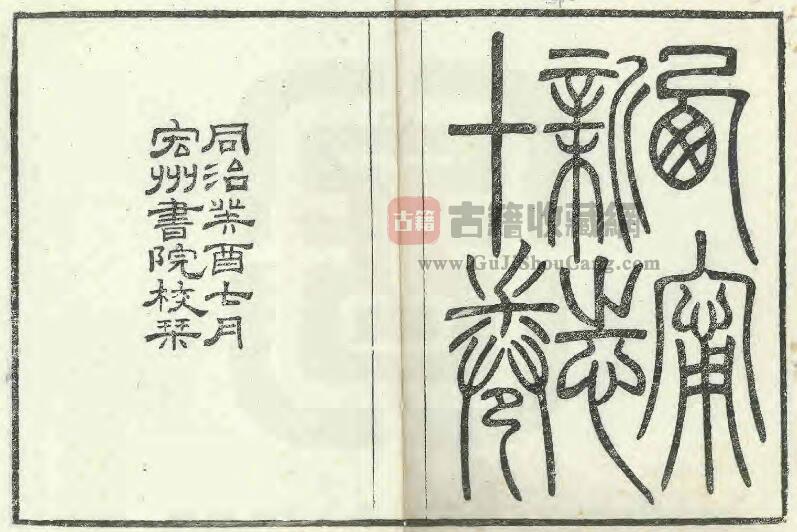 西甯
新志
十卷
同治癸酉七月
宏州書院校栞
古籍
古籍收藏網
www.GuJiShouCang.com